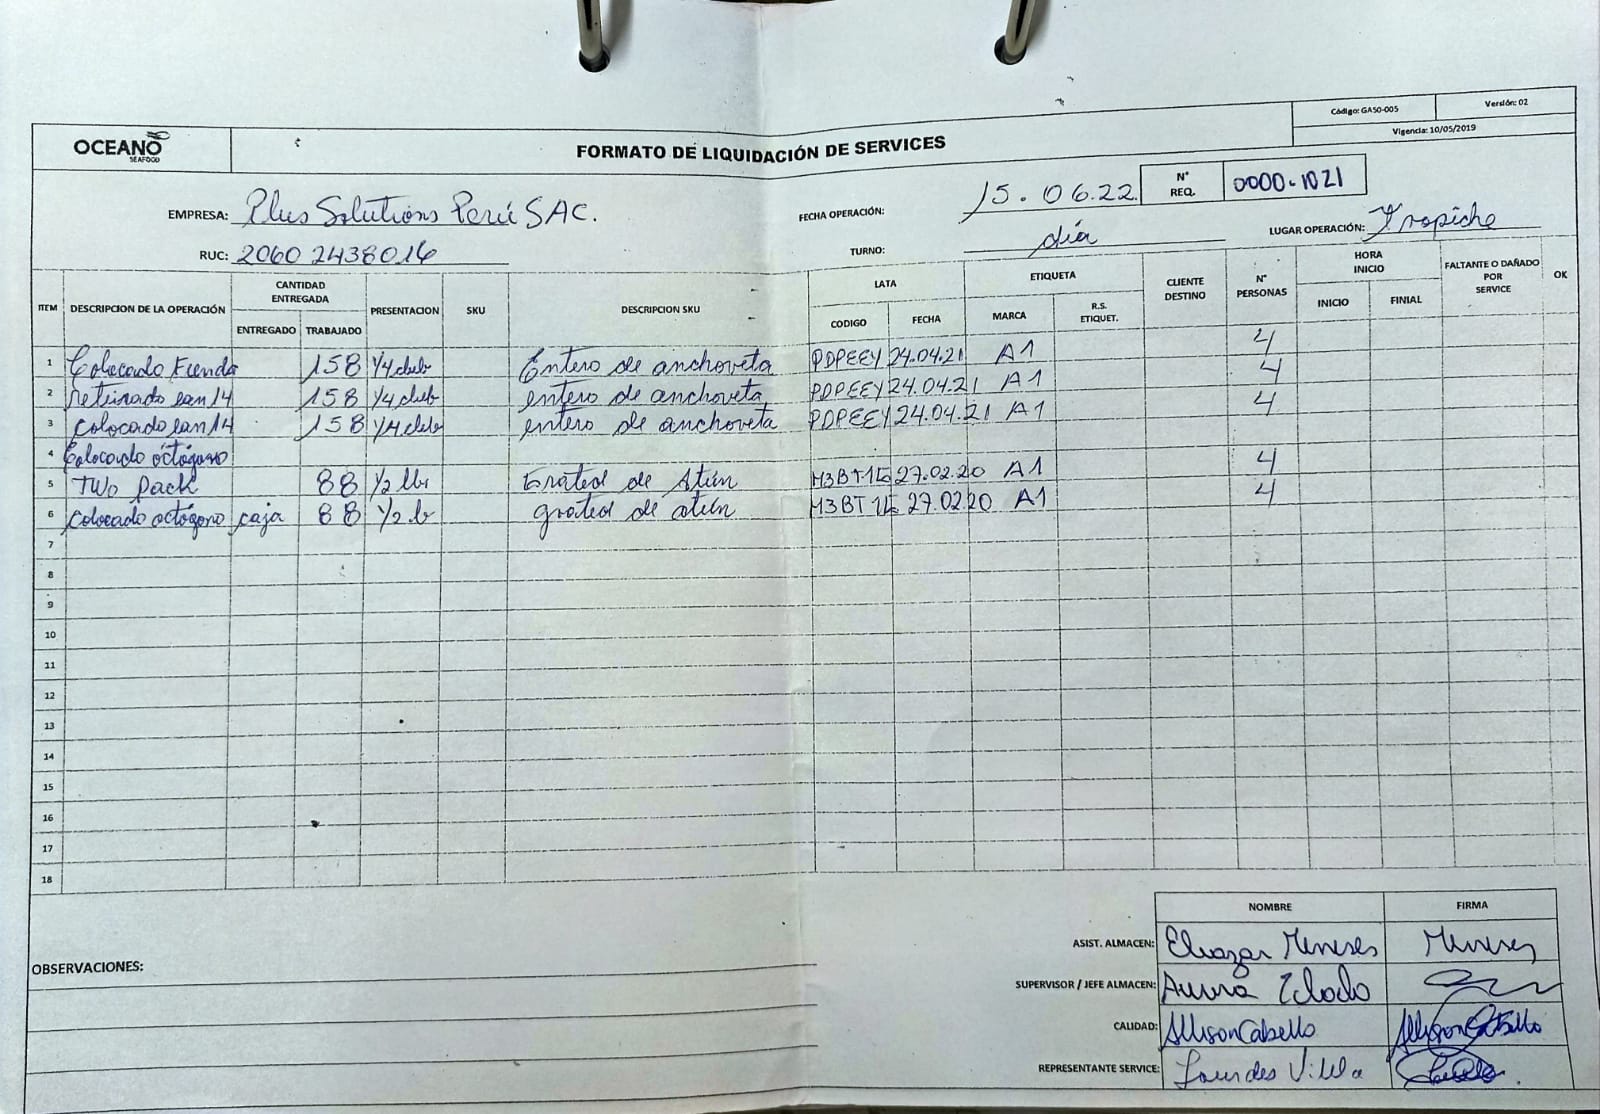 OCEANO SEAFOOD
FORMATO DE LIQUIDACIÓN DE SERVICES
Código: GA50-005 Versión: 02
Vigencia: 10/05/2019
EMPRESA: Plus Solutions Perú SAC.
FECHA OPERACIÓN: 15.06.22 N° REQ. 0000-1021
RUC: 20602438016
TURNO: día LUGAR OPERACIÓN: Trapiche
ITEM DESCRIPCION DE LA OPERACIÓN CANTIDAD ENTREGADA ENTREGADO TRABAJADO PRESENTACION SKU DESCRIPCION SKU LATA CODIGO FECHA ETIQUETA MARCA R.S. ETIQUET. CLIENTE DESTINO N° PERSONAS HORA INICIO INICIO FINIAL FALTANTE O DAÑADO POR SERVICE OK
1 Colocado Funda 158 1/4 club Entero de anchoveta PDPEEY 24.04.21 A1 4
2 retirado ean14 158 1/4 club entero de anchoveta PDPEEY 24.04.21 A1 4
3 colocado ean14 158 1/4 club entero de anchoveta PDPEEY 24.04.21 A1 4
4 Colocado octógono
5 TWO pack 88 1/2 lb Grated de Atún 27.02.20 A1 4
6 colocado octógono caja 88 1/2 lb grated de atún 27.02.20 A1 4
7
8
9
10
11
12
13
14
15
16
17
18
NOMBRE FIRMA
ASIST. ALMACEN: Eleazar Meneses Meneses
SUPERVISOR / JEFE ALMACEN:
OBSERVACIONES:
CALIDAD: Allison Cabello Allison Cabello
REPRESENTANTE SERVICE: Lourdes Vilela